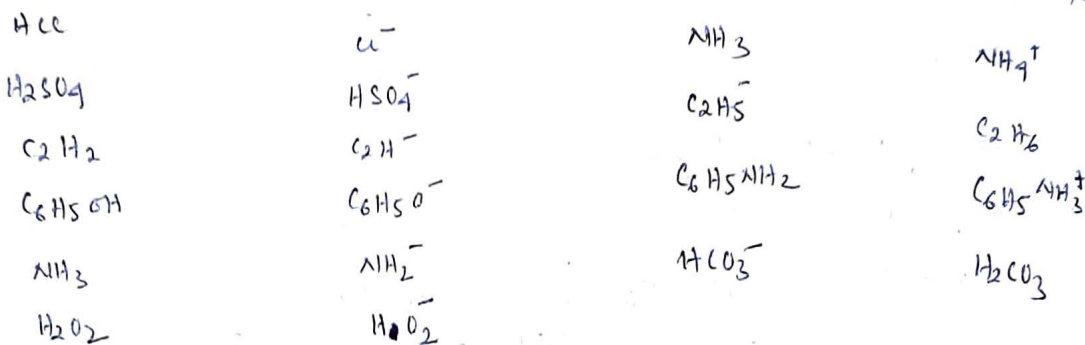 HCl Cl⁻ NH3 NH4⁺
H2SO4 HSO4⁻ C2H5⁻ C2H6
C2H2 C2H⁻ C6H5NH2 C6H5NH3⁺
C6H5OH C6H5O⁻ HCO3⁻ H2CO3
NH3 NH2⁻
H2O2 HO2⁻